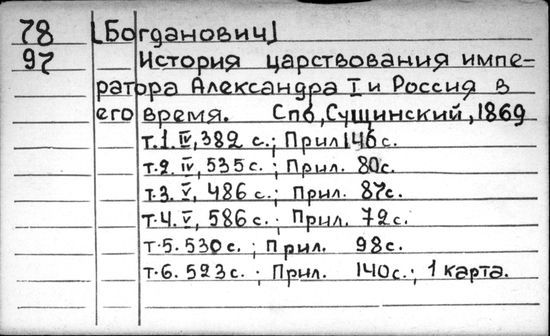 78 [Богданович]
97 История царствования импе-
ратора Александра I и Россия в
его время. Спб, Сущинский, 1869
т.1. IV, 382 с.; Прил. 146 с.
т.2. IV, 535 с.; Прил. 80 с.
т.3. V, 486 с.; Прил. 87 с.
т.4. V, 586 с.; Прил. 72 с.
т.5. 530 с.; Прил. 98 с.
т.6. 523 с.; Прил. 140 с.; 1 карта.